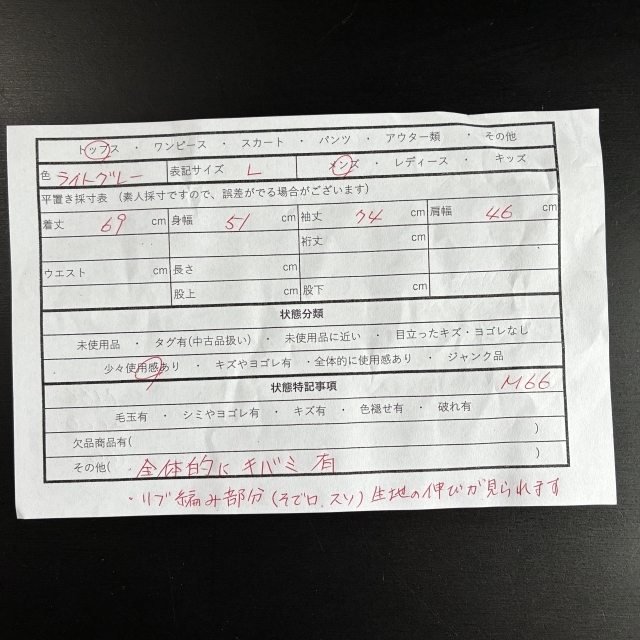 トップス ・ ワンピース ・ スカート ・ パンツ ・ アウター類 ・ その他
色 ライトグレー 表記サイズ L メンズ ・ レディース ・ キッズ
平置き採寸表 (素人採寸ですので、誤差がでる場合がございます)
着丈 69 cm 身幅 51 cm 袖丈 74 cm 肩幅 46 cm
裄丈 cm
ウエスト cm 長さ cm
股上 cm 股下 cm
状態分類
未使用品 ・ タグ有(中古品扱い) ・ 未使用品に近い ・ 目立ったキズ・ヨゴレなし
少々使用感あり ・ キズやヨゴレ有 ・全体的に使用感あり ・ ジャンク品
状態特記事項 M66
毛玉有 ・ シミやヨゴレ有 ・ キズ有 ・ 色褪せ有 ・ 破れ有
欠品商品有( )
その他( ・全体的にキバミ有 )
・リブ編み部分(そで口、スソ)生地の伸びが見られます